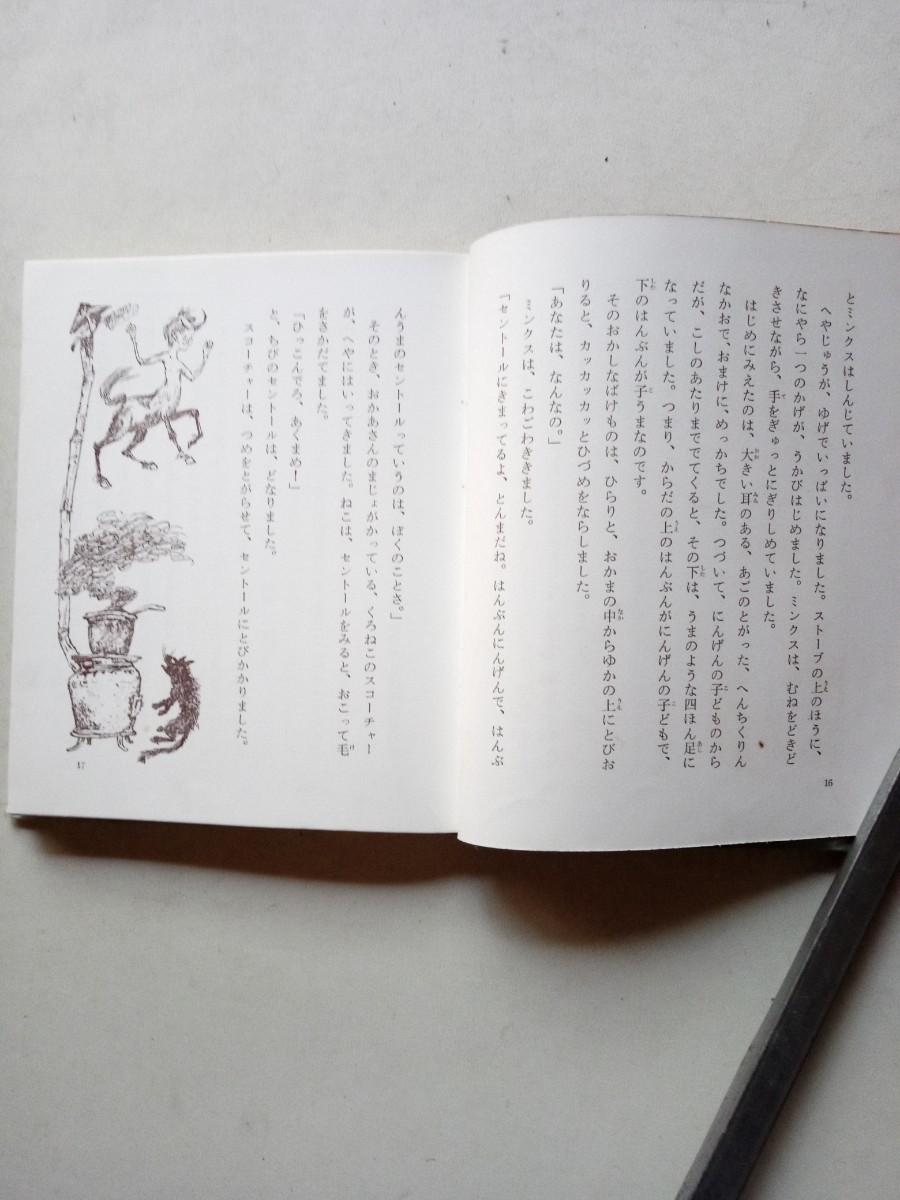 とミンクスはしんじていました。
へやじゅうが、ゆげでいっぱいになりました。ストーブの上のほうに、
なにやら一つのかげが、うかびはじめました。ミンクスは、むねをどきど
きさせながら、手をぎゅっとにぎりしめていました。
はじめにみえたのは、大きい耳のある、あごのとがった、へんちくりん
なかおで、おまけに、めっかちでした。つづいて、にんげんの子どものから
だが、こしのあたりまででてくると、その下は、うまのような四ほん足に
なっていました。つまり、からだの上のはんぶんがにんげんの子どもで、
下のはんぶんが子うまなのです。
そのおかしなばけものは、ひらりと、おかまの中からゆかの上にとびお
りると、カッカッカッとひづめをならしました。
「あなたは、なんなの。」
ミンクスは、こわごわききました。
「セントールにきまってるよ、とんまだね。はんぶんにんげんで、はんぶ
16
んうまのセントールっていうのは、ぼくのことさ。」
そのとき、おかあさんのまじょがかっている、くろねこのスコーチャー
が、へやにはいってきました。ねこは、セントールをみると、おこって毛
をさかだてました。
「ひっこんでろ、あくまめ！」
と、ちびのセントールは、どなりました。
スコーチャーは、つめをとがらせて、セントールにとびかかりました。
17